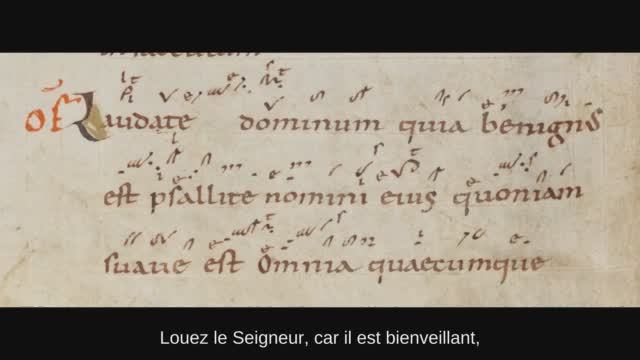 OF Laudate dominum quia benignus
est psallite nomini eius quoniam
suaue est Omnia quaecumque
Louez le Seigneur, car il est bienveillant,